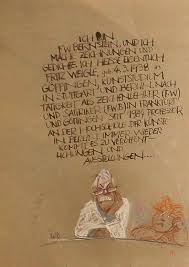 ICH BIN
F.W. BERNSTEIN, UND ICH
MACHE ZEICHNUNGEN UND
GEDICHTE. ICH HEISSE EIGENTLICH
FRITZ WEIGLE, geb. 4.3.1938 in
GÖPPINGEN, KUNSTSTUDIUM
IN STUTTGART UND BERLIN. NACH
TÄTIGKEIT ALS ZEICHENLEHRER (F.W.)
UND SATIRIKER (F.W.B) IN FRANKFURT
UND GÖTTINGEN SEIT 1984 PROFESSOR
AN DER HOCHSCHULE DER KÜNSTE
IN BERLIN. IMMER WIEDER
KOMMT ES ZU VERÖFFENT-
LICHUNGEN UND
AUSSTELLUNGEN...